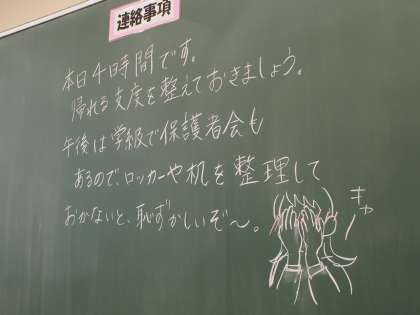 連絡事項
本日4時間です。
帰れる支度を整えておきましょう。
午後は学級で保護者会も
あるので、ロッカーや机を整理して
おかないと、恥ずかしいぞ〜。
キャー